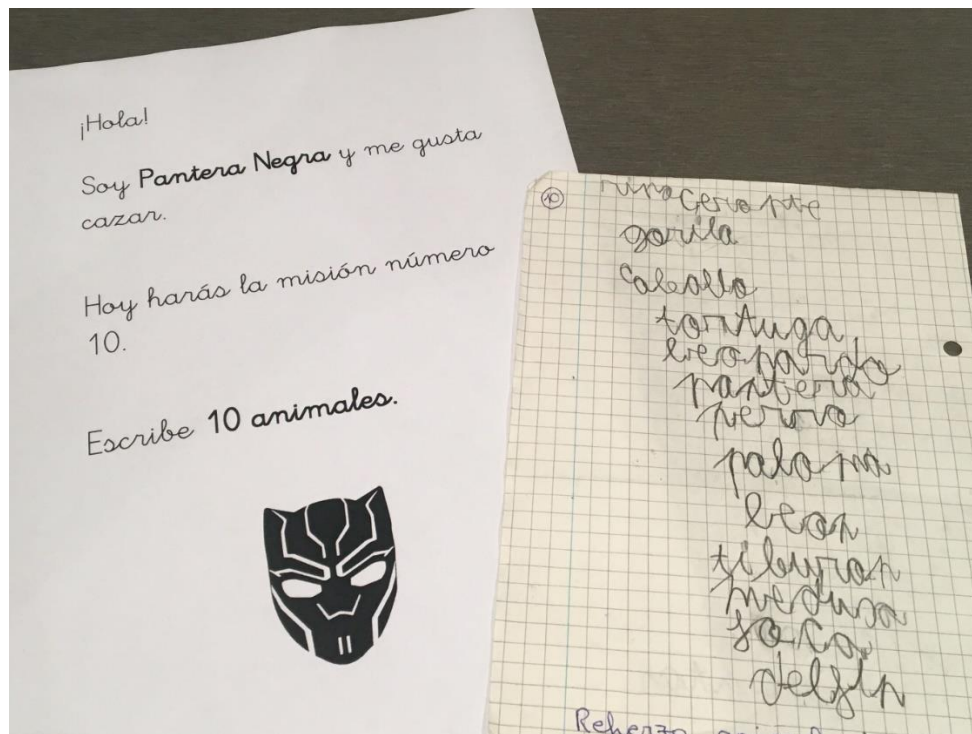 ¡Hola!
Soy Pantera Negra y me gusta
cazar.
Hoy harás la misión número
10.
Escribe 10 animales.
10
rinoceronte
gorila
caballo
tortuga
leopardo
pantera
perro
paloma
leon
tiburon
medusa
foca
delfin